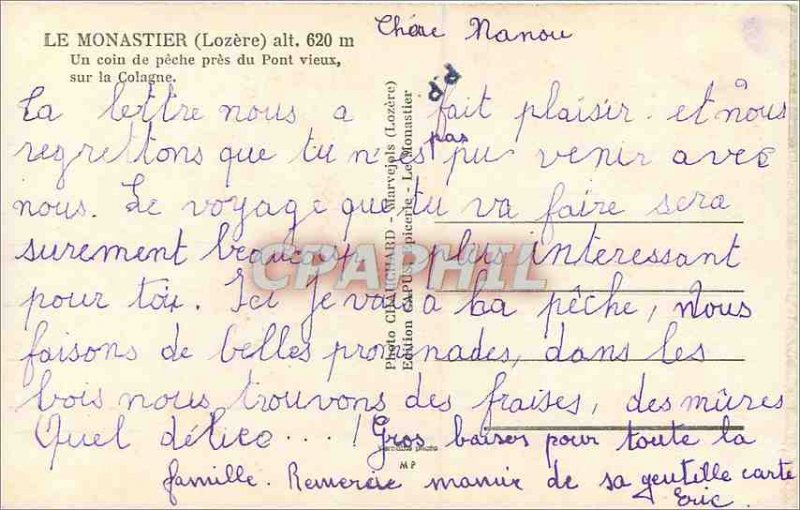 LE MONASTIER (Lozère) alt. 620 m
Un coin de pêche près du Pont vieux,
sur la Colagne.
Chère Nanou
Ta lettre nous a fait plaisir. et nous
regrettons que tu n'es pas pu venir avec
nous. Le voyage que tu va faire sera
surement beaucoup plus interessant
pour toi. Ici je vais a la pêche, Nous
faisons de belles promenades, dans les
bois nous trouvons des fraises, des mûres
Quel délice....! Gros baisers pour toute la
famille. Remercie mamie de sa gentille carte
Eric.
Photo CHAUCHARD - Marvejols (Lozère)
Edition CAPUS, Epicerie - Le Monastier
MP
CPAPHIL